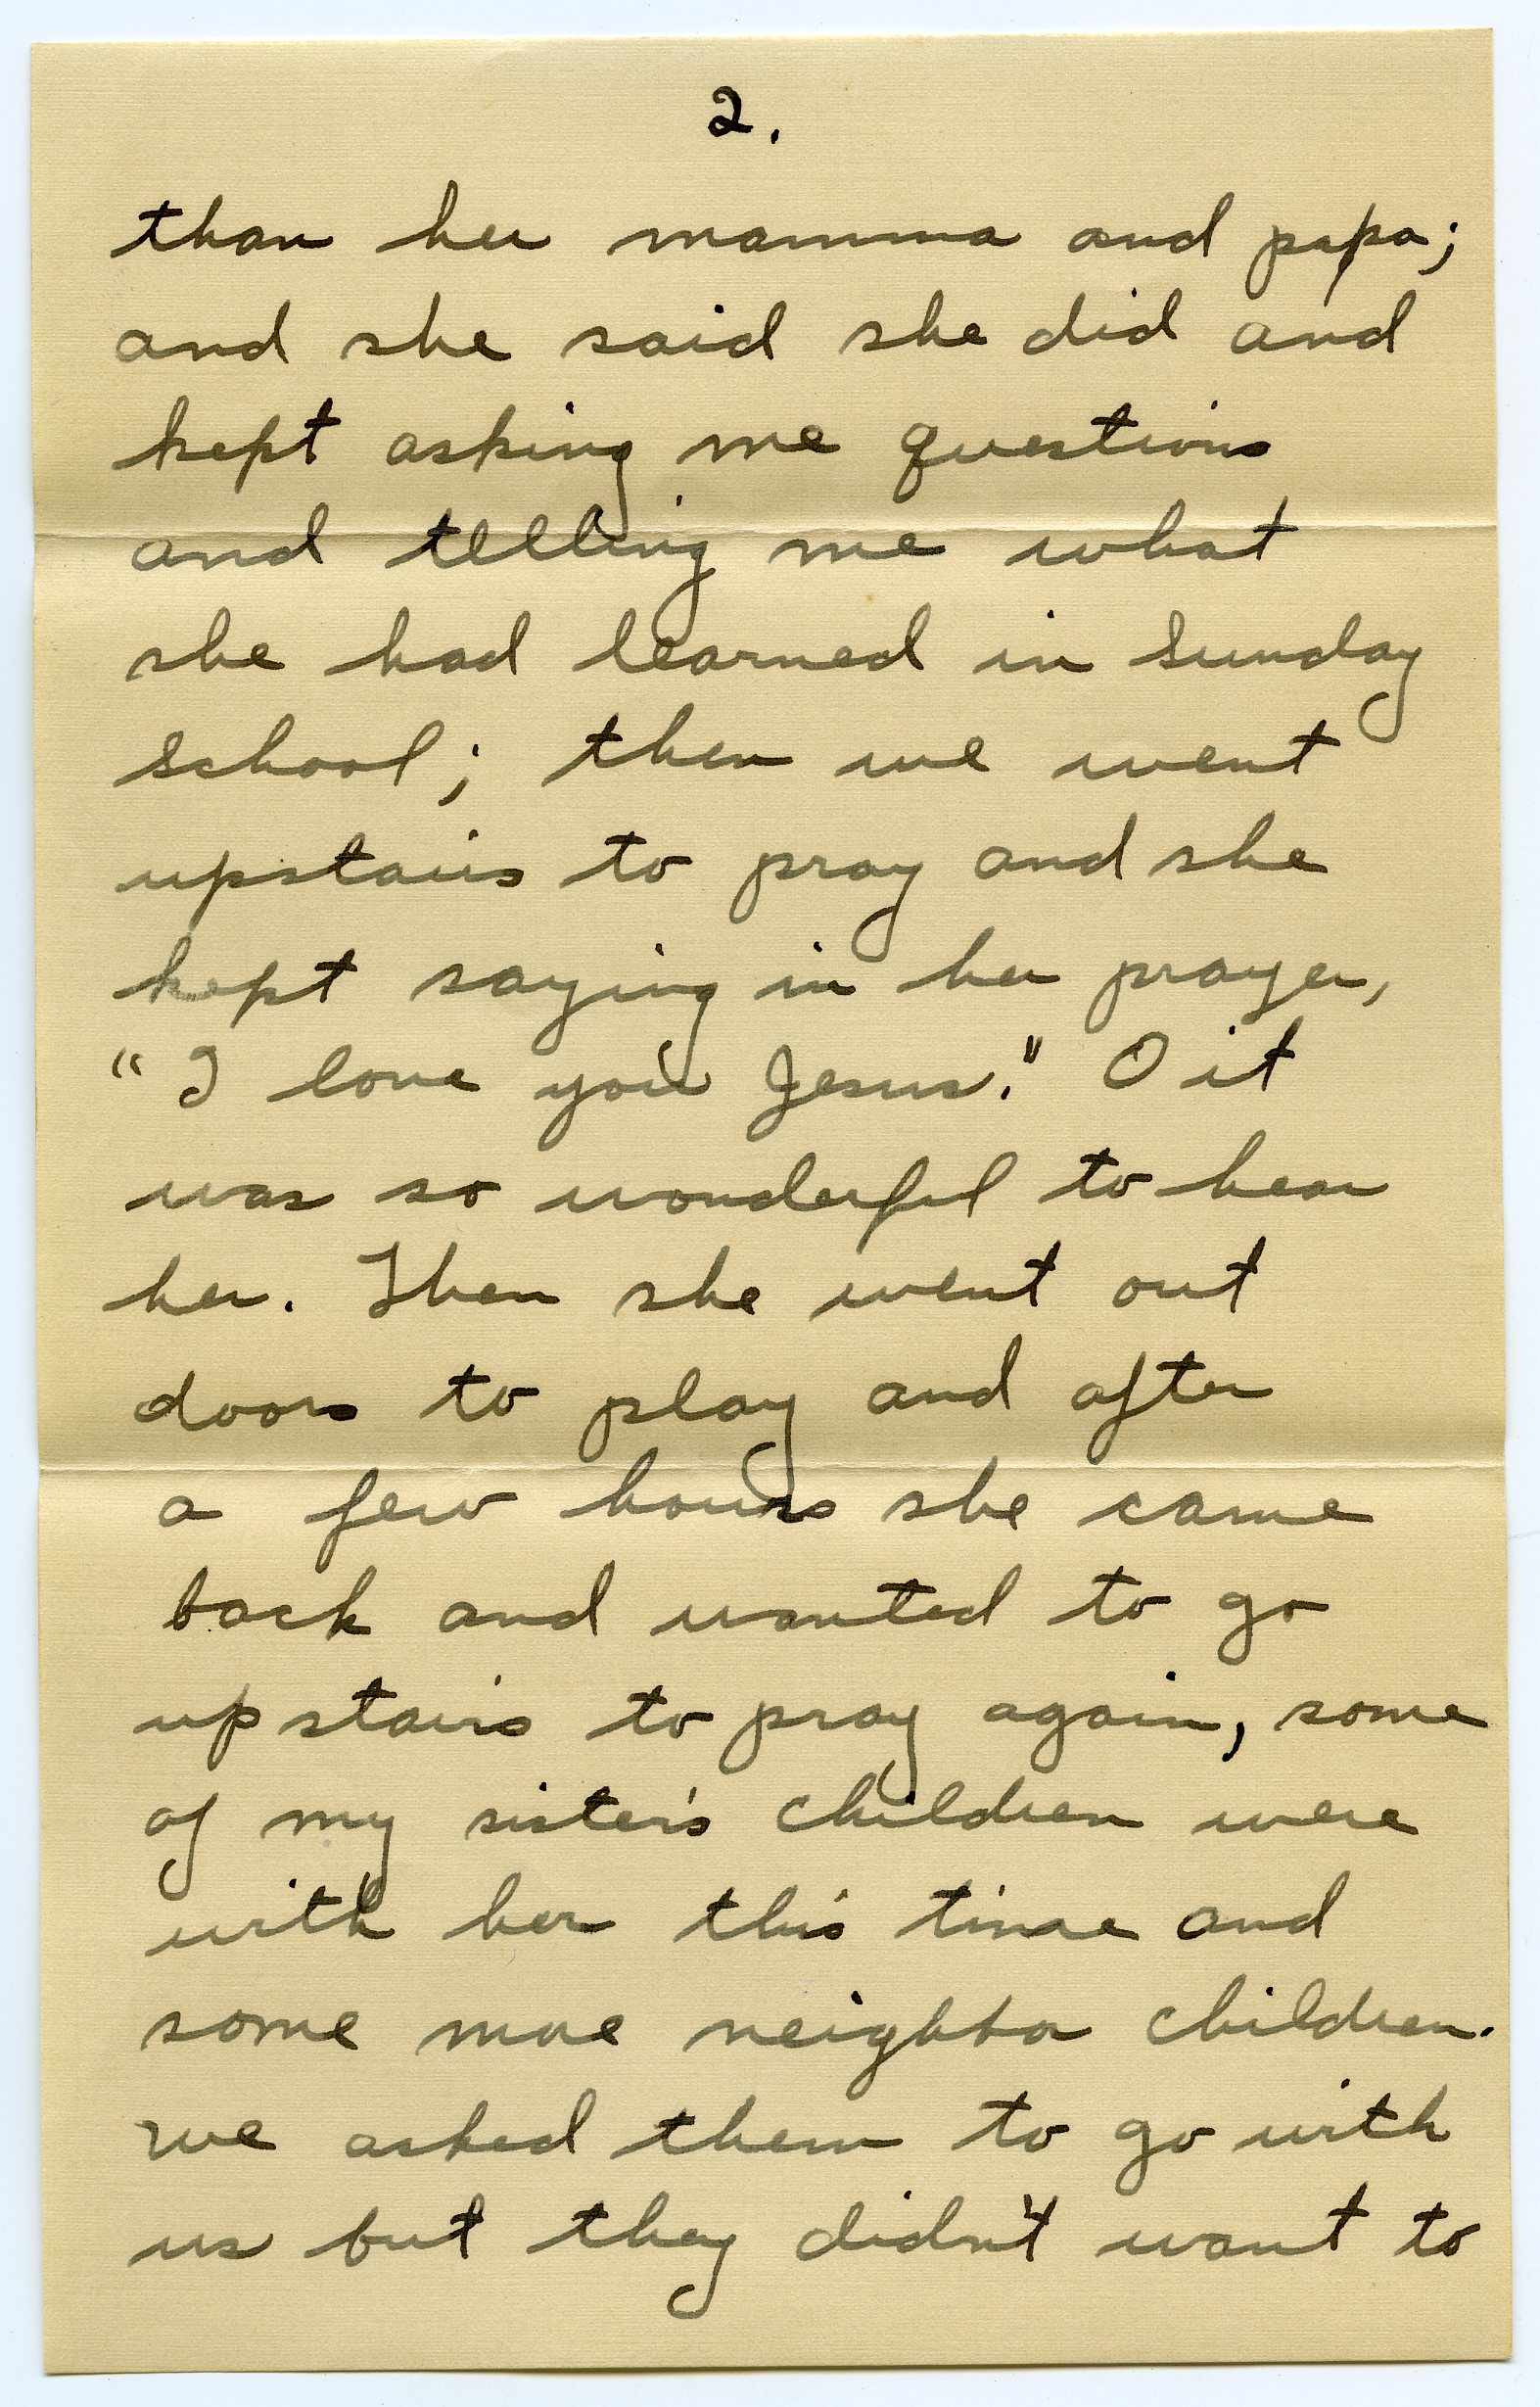 2.
than her mamma and papa;
and she said she did and
kept asking me questions
and telling me what
she had learned in Sunday
School; then we went
upstairs to pray and she
kept saying in her prayer,
"I love you Jesus." O it
was so wonderful to hear
her. Then she went out
doors to play and after
a few hours she came
back and wanted to go
upstairs to pray again, some
of my sister's children were
with her this time and
some more neighbor children.
we asked them to go with
us but they didn't want to